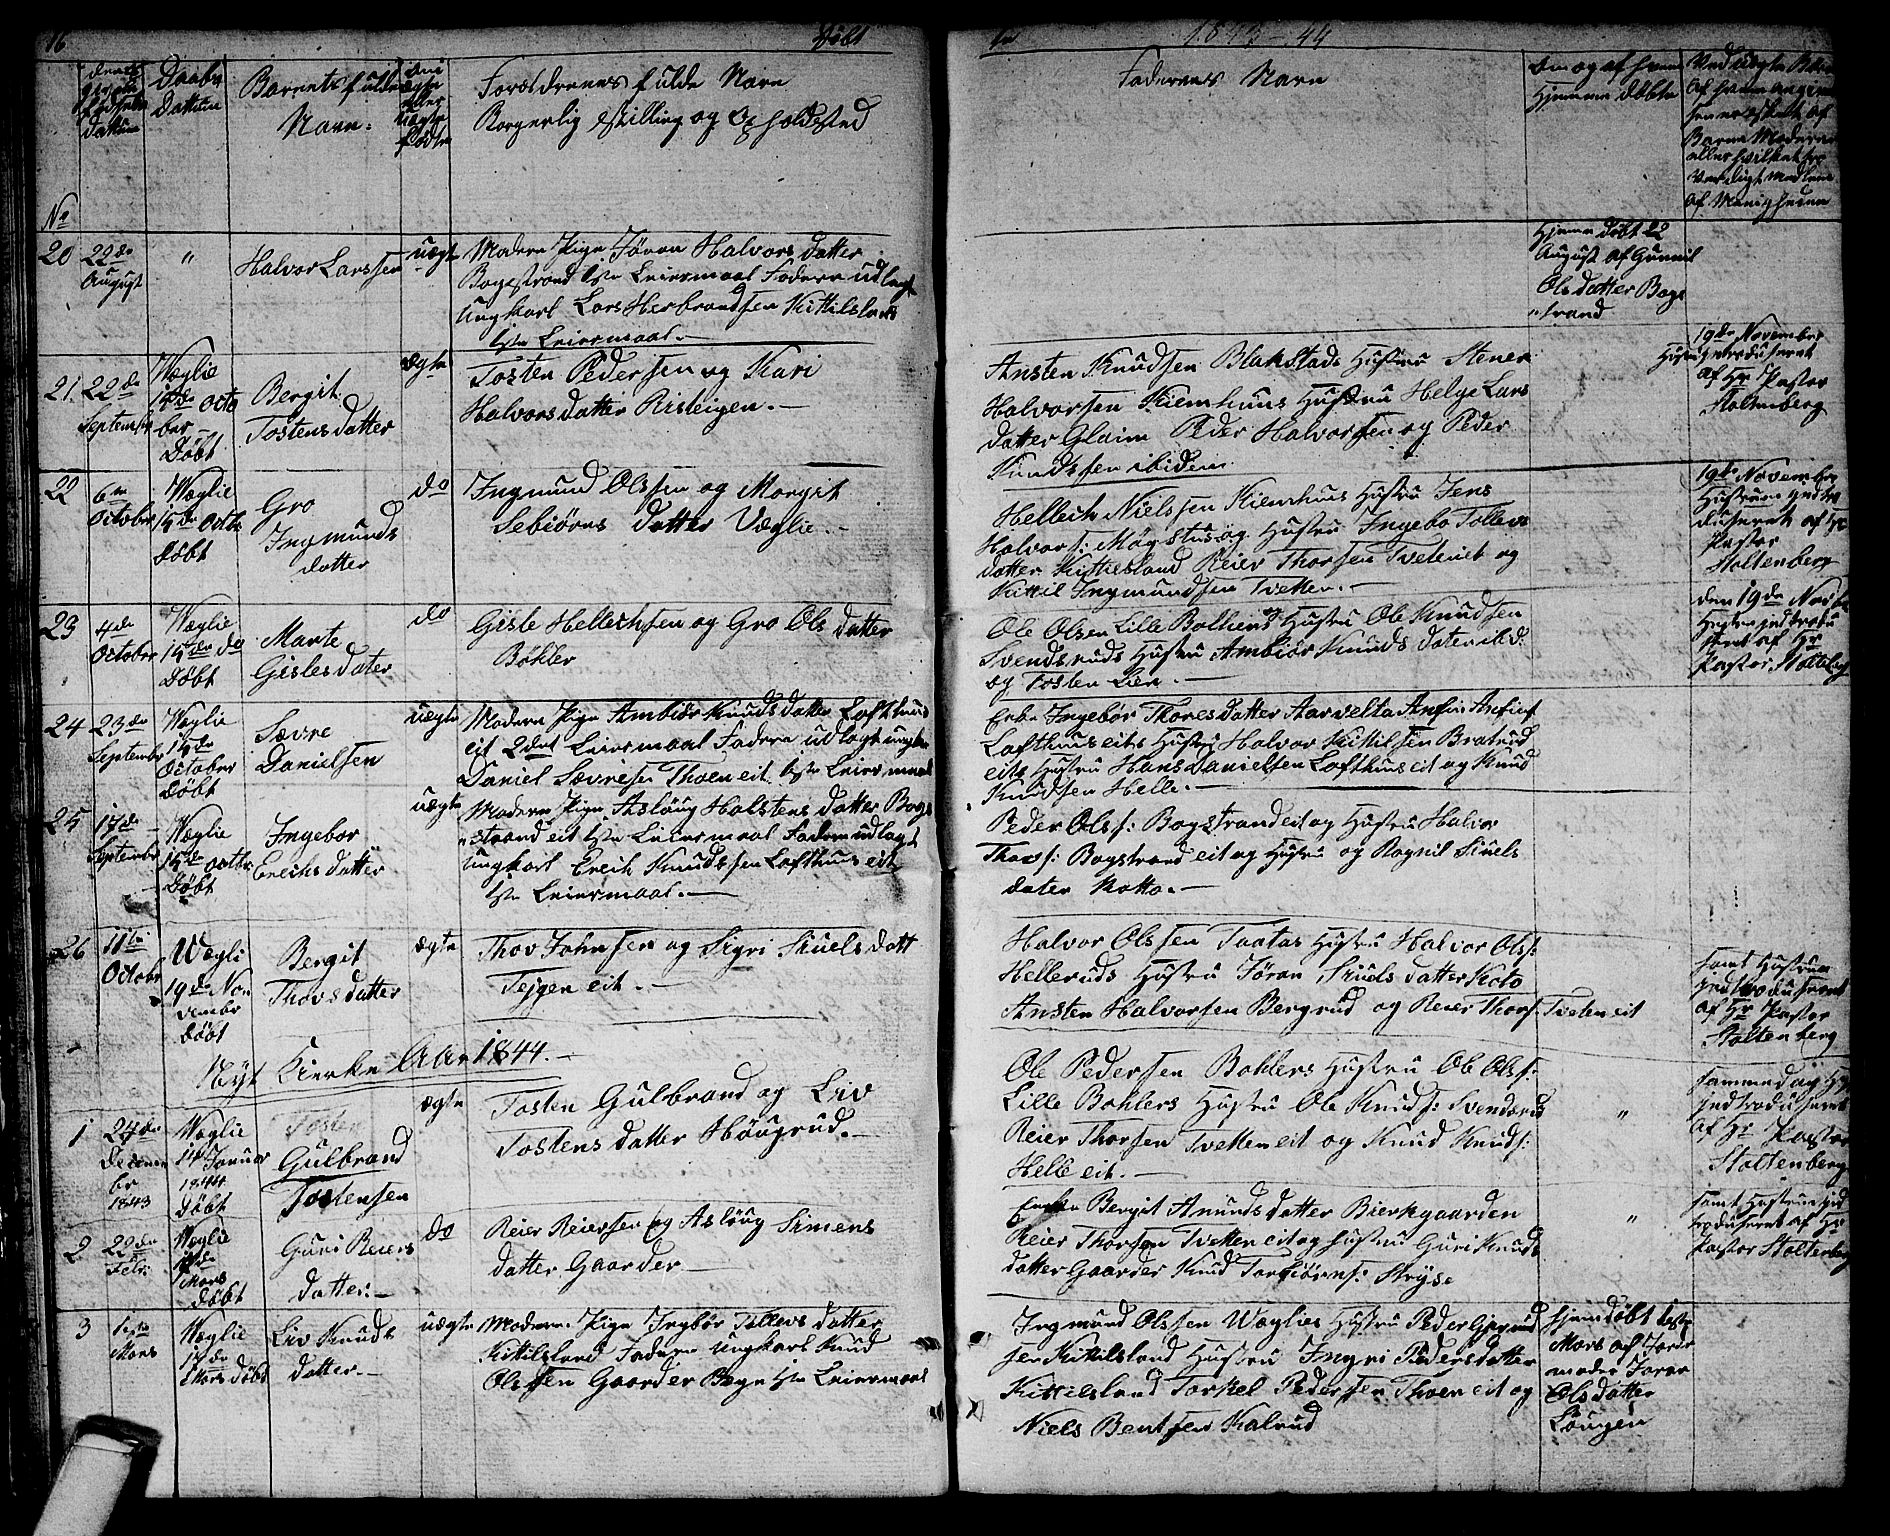 16 Døbt
1843-44
No
Daabs
Datum
Barnets fulde
Navn.
Forældrenes fulde Navn
Borgerlig Stilling og Opholdsted
Faderenes Navn
Om og af hvem
Hjemme døbte
20 22de August
"
Halvor Larssen
uægte
Moderen Pige Jøran Halvors datter
Bogestrand 1ste Leiermaal Faderen udlagt
Ungkarl Lars Herbrandsen Kittilsland
1ste Leiermaal.-
Hjemme døbt 22
August af Gunnil
Olsdatter Bog
strand
21 22de September
Wæglie
15de Octo
ber
Døbt
Bergit
Tostensdatter
ægte
Tosten Pedersen og Kari
Halvorsdatter Risteigen.-
Ansten Knudsen Blakstads Hustru Stener
Halvorsen Kiemhuus Hustru Helge Lars
datter Glaim Peder Halvorsen og Peder
Knudssen ibidem.
19de November
Hustru Introduseret
af Hr Pastor
Stoltenberg
22 6te October
Wæglie
15de Octbr
Døbt
Gro
Ingmunds
datter
do
Ingmund Olssen og Margit
Sebiørns datter Væglie.-
Hellech Nielssen Kiemhuus Hustru Jens
Halvors: Møgstus og Hustru Ingebo Tollevs
datter Kittilsland Reier Thorsen Tveteneit og
Kittil Ingmundsen Tvetten.-
19de November
Hustruen Intro
duseret af Hr
Pastor
Stoltenberg
23 4de October
Wæglie
15de do
Døbt
Marte
Gislesdater
do
Gisle Hellechsen og Gro Ols datter
Bøhler
Ole Olsen Lille Bolliens Hustru Ole Knudsen
Svendsruds Hustru Ambiør Knuds dater ibid.
og Tosten Lien.-
den 19de Novbr
Hustru introdu
seret af Hr
Pastor Stoltenberg
24 23de September
Wæglie
15de
October
Døbt
Sævre
Danielsen
uægte
Moderen Pige Ambiør Knudsdatter Lofthuus
eit 2det Leiermaal Faderen udlagt ungkarl
Daniel Sævresen Thoen eit 1ste Leiermaal
Enke Ingebør Thoresdatter Aarvelta Anfin Anfins:
Lofthuus eits Hustru Halvor Kittilsen Bratrud
eits Hustru Hans Danielsen Lofthus eit og Knud
Knudsen Helle.-
25 17de September
Wæglie
15de octbr
Døbt
Ingebor
Erichsdatter
uægte
Moderen Pige Asløug Holstens datter Bogs
strand eit 1ste Leiermaal Faderen udlagt
ungkarl Erich Knudssen Lofthuus eit
1ste Leiermaal.-
Peder Ols: Bogstrand eit og Hustru Halvor
Thovs: Bogstrand eit og Hustru og Ragnil Siuels
dater Kotto.-
26 11te October
Wægli
19de No
vembr
Døbt
Bergit
Thovsdatter
ægte
Thov Johnsen og Sigri Siuels datt
Tejgen eit.-
Halvor Olssen Taatas Hustru Halvor Ols:
Helleruds Hustru Jøran Siuels datter Koto
Ansten Halvorsen Bergrud og Reier Thors: Tveten eit
samt Hustruen
Introduseret
af Hr Pastor
Stoltenberg
Nyt Kierke Aar 1844.-
1 27de
Decem
br
1843
Wæglie
14 Januar
1844
Døbt
Tosten
Gulbrand
Tostensen
ægte
Tosten Gulbrand og Liv
Tostens datter Høugrud.-
Ole Pedersen Bohlers Hustru Ole Ols:
Lille Bohlers Hustru Ole Knuds: Svendsrud
Reier Thorsen Tvetten eit og Knud Knuds:
Helle eit.-
"
af Hr Pastor
Stoltenberg
2 22de
Febr:
Wæglie
Mars
Døbt
Guri Reiers
datter.-
do
Reier Reiersen og Asløug Simens
datter Gaarder
Enke Bergit Amunds datter Bierkgaarden
Reier Thorsen Tvetten eit og Hustru Guri Knuds
datter Gaarder Knud Torbiørns: Stryse
"
samt Hustru Int
roduseret af Hr
Pastor Stoltenberg
3 1ste
Mars
Wæglie
17de
Mars Døbt
Liv Knuds
datter.-
uægte
Moderen Pige Ingbør Tollevs datter
Kittilsland Faderen Ungkarl Knud
Olssen Gaarder Begn 1ste Leiermaal
Ingmund Olssen Wæglies Hustru Peder
sen Kittilsland Hustru Ingri Pedersdatter
Kittilsland Torkel Pedersen Thoen eit og
Niels Bentsen Kalrud
Hjem døbt 1ste
Mars af Jorde
moder Joran
Olsdatter